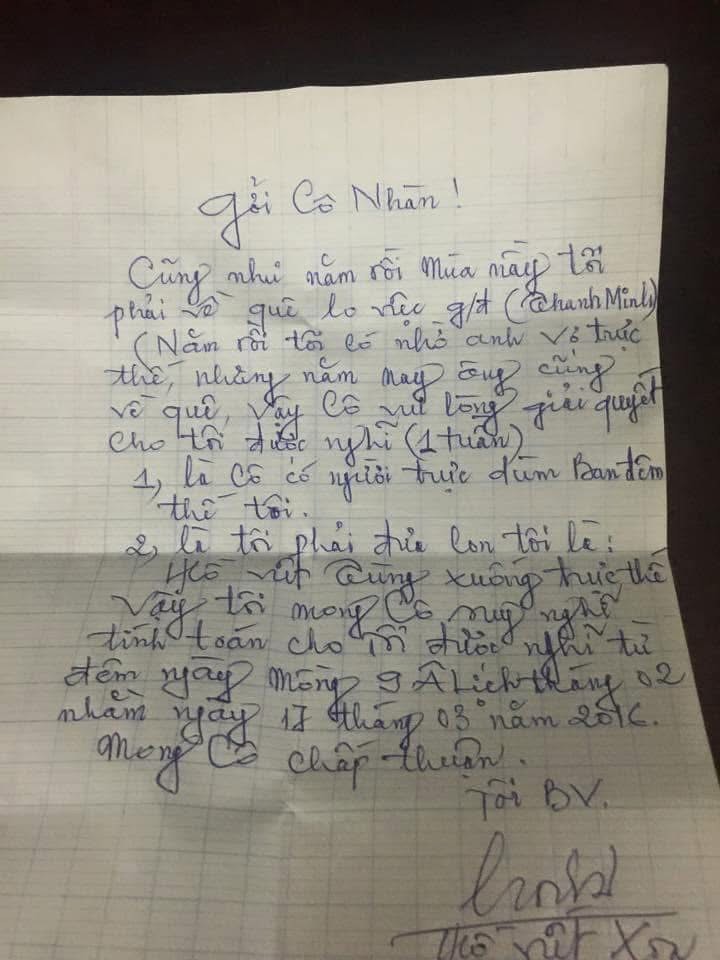 Gởi Cô Nhàn!
Cũng như năm rồi mùa này tôi
phải về quê lo việc g/đ (Thanh Minh)
(Năm rồi tôi có nhờ anh Vỏ trực
thế, nhưng năm nay ông cũng
về quê, vậy Cô vui lòng giải quyết
cho tôi được nghĩ (1 tuần)
1, là Cô có người trực dùm Ban đêm
thế tôi.
2, là tôi phải đưa con tôi là:
Hồ Viết Tùng xuống trực thế
Vậy tôi mong Cô suy nghĩ
tính toán cho Tôi được nghĩ từ
đêm ngày mồng 9 Â Lịch tháng 02
nhằm ngày 17 tháng 03 năm 2016.
Mong Cô chấp thuận.
Tôi BV.
Hồ Viết